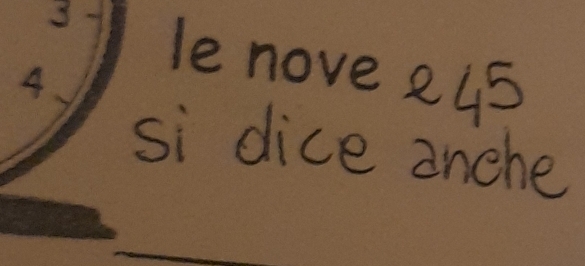 3
4
le nove e 45
si dice anche